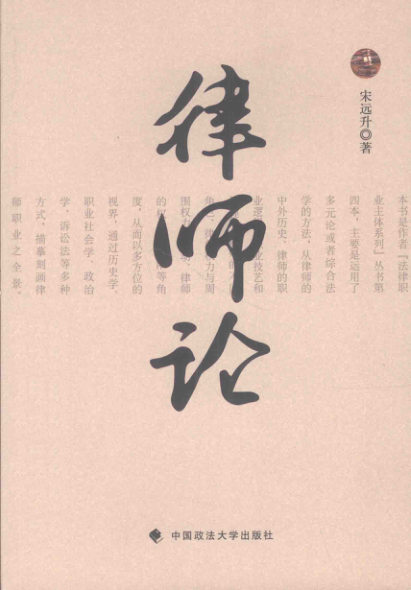 宋远升◎著
律师论
本书是作者『法律职
业主体系列』丛书第
四本，主要是运用了
多元论或者综合法
学的方法，从律师的
中外历史、律师的职
业逻 业技艺和
角 力与周
围权力 律师
的 等角
度，从而以多方位的
视界，通过历史学、
职业社会学、政治
学、诉讼法等多种
方式，描摹刻画律
师职业之全景。
中国政法大学出版社